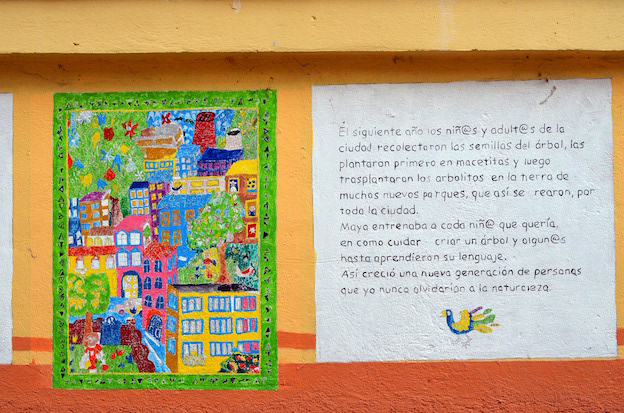 El siguiente año los niñ@s y adult@s de la
ciudad recolectaron las semillas del árbol, las
plantaron primero en macetitas y luego
trasplantaron los arbolitos en la tierra de
muchos nuevos parques, que así se rearon, por
toda la ciudad.
Maya entrenaba a cada niñ@ que quería,
en como cuidar criar un árbol y algun@s
hasta aprendieron su lenguaje.
Así creció una nueva generación de personas
que ya nunca olvidarían a la naturaleza.